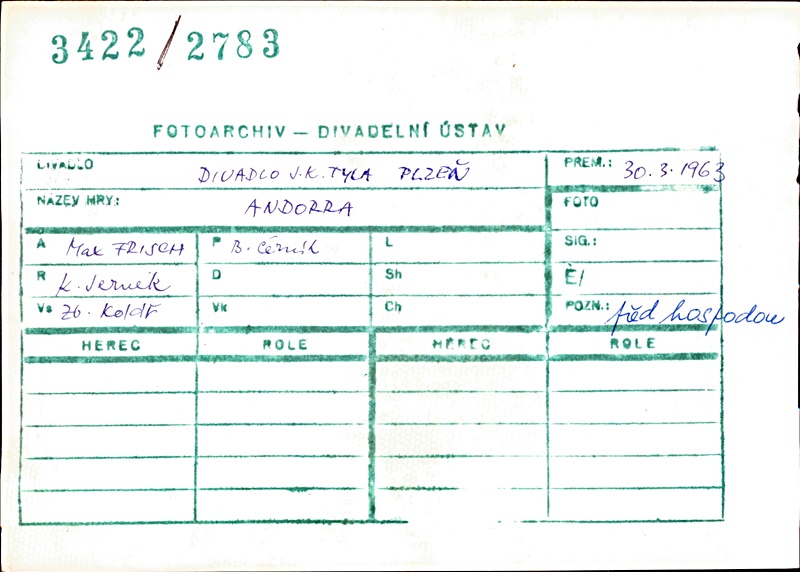 3422/2783
FOTOARCHIV – DIVADELNÍ ÚSTAV
DIVADLO DIVADLO J.K. TYLA PLZEŇ PREM.: 30.3.1963
NÁZEV HRY: ANDORRA FOTO
A Max FRISCH P B. Černík L SIG.:
R K. D Sh Č/
Vs Zb. Kolář Vk Ch POZN.: před hospodou
HEREC ROLE HEREC ROLE